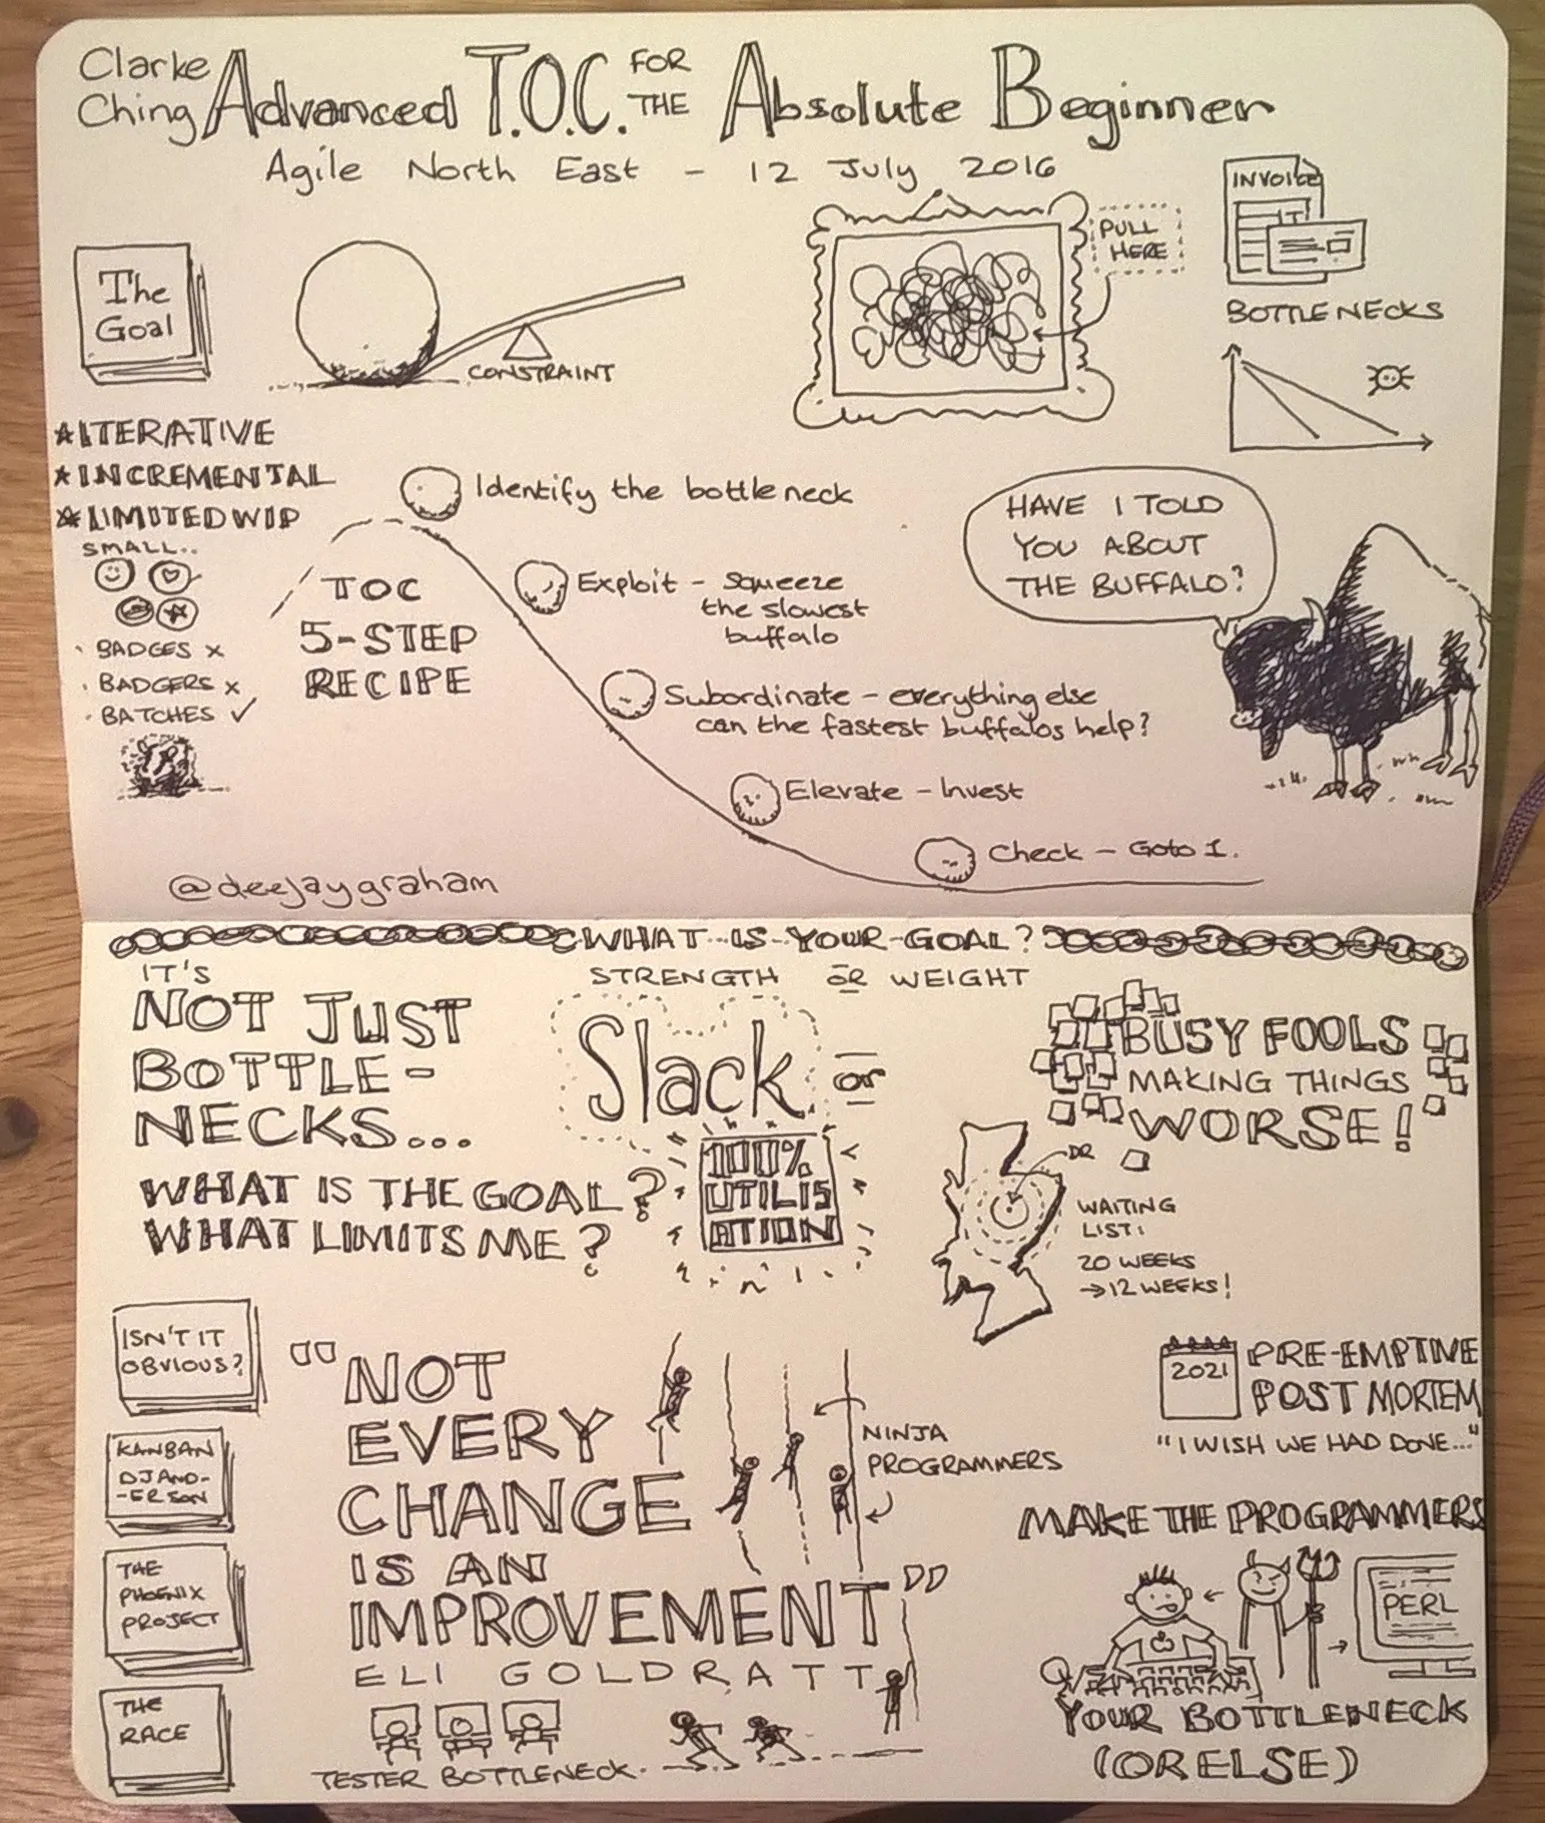 Clarke
Ching
Advanced T.O.C. FOR THE Absolute Beginner
Agile North East - 12 July 2016
The
Goal
CONSTRAINT
PULL
HERE
INVOICE
BOTTLENECKS
*ITERATIVE
*INCREMENTAL
*LIMITED WIP
SMALL..
· BADGES x
· BADGERS x
· BATCHES ✓
TOC
5-STEP
RECIPE
Identify the bottleneck
Exploit - squeeze
the slowest
buffalo
Subordinate - everything else
can the fastest buffalos help?
Elevate - Invest
Check - Goto 1.
HAVE I TOLD
YOU ABOUT
THE BUFFALO?
@deejaygraham
WHAT IS YOUR GOAL?
STRENGTH OR WEIGHT
IT'S
NOT JUST
BOTTLE-
NECKS...
WHAT IS THE GOAL?
WHAT LIMITS ME?
Slack or
100%
UTILIS
ATION
BUSY FOOLS
MAKING THINGS
WORSE!
DR
WAITING
LIST:
20 WEEKS
→12 WEEKS!
ISN'T IT
OBVIOUS?
KANBAN
DJ AND-
-ERSON
THE
PHOENIX
PROJECT
THE
RACE
"NOT
EVERY
CHANGE
IS AN
IMPROVEMENT"
ELI GOLDRATT
NINJA
PROGRAMMERS
TESTER BOTTLENECK.
2021
PRE-EMPTIVE
POST MORTEM
"I WISH WE HAD DONE..."
MAKE THE PROGRAMMERS
PERL
YOUR BOTTLENECK
(OR ELSE)